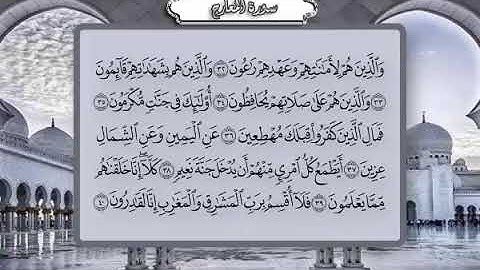 سورة المعارج
وَالَّذِينَ هُمْ لِأَمَانَاتِهِمْ وَعَهْدِهِمْ رَاعُونَ ٣٢ وَالَّذِينَ هُم بِشَهَادَاتِهِمْ قَائِمُونَ
٣٣ وَالَّذِينَ هُمْ عَلَىٰ صَلَاتِهِمْ يُحَافِظُونَ ٣٤ أُولَٰئِكَ فِي جَنَّاتٍ مُّكْرَمُونَ ٣٥
فَمَالِ الَّذِينَ كَفَرُوا قِبَلَكَ مُهْطِعِينَ ٣٦ عَنِ الْيَمِينِ وَعَنِ الشِّمَالِ
عِزِينَ ٣٧ أَيَطْمَعُ كُلُّ امْرِئٍ مِّنْهُمْ أَن يُدْخَلَ جَنَّةَ نَعِيمٍ ٣٨ كَلَّا إِنَّا خَلَقْنَاهُم
مِّمَّا يَعْلَمُونَ ٣٩ فَلَا أُقْسِمُ بِرَبِّ الْمَشَارِقِ وَالْمَغَارِبِ إِنَّا لَقَادِرُونَ ٤٠